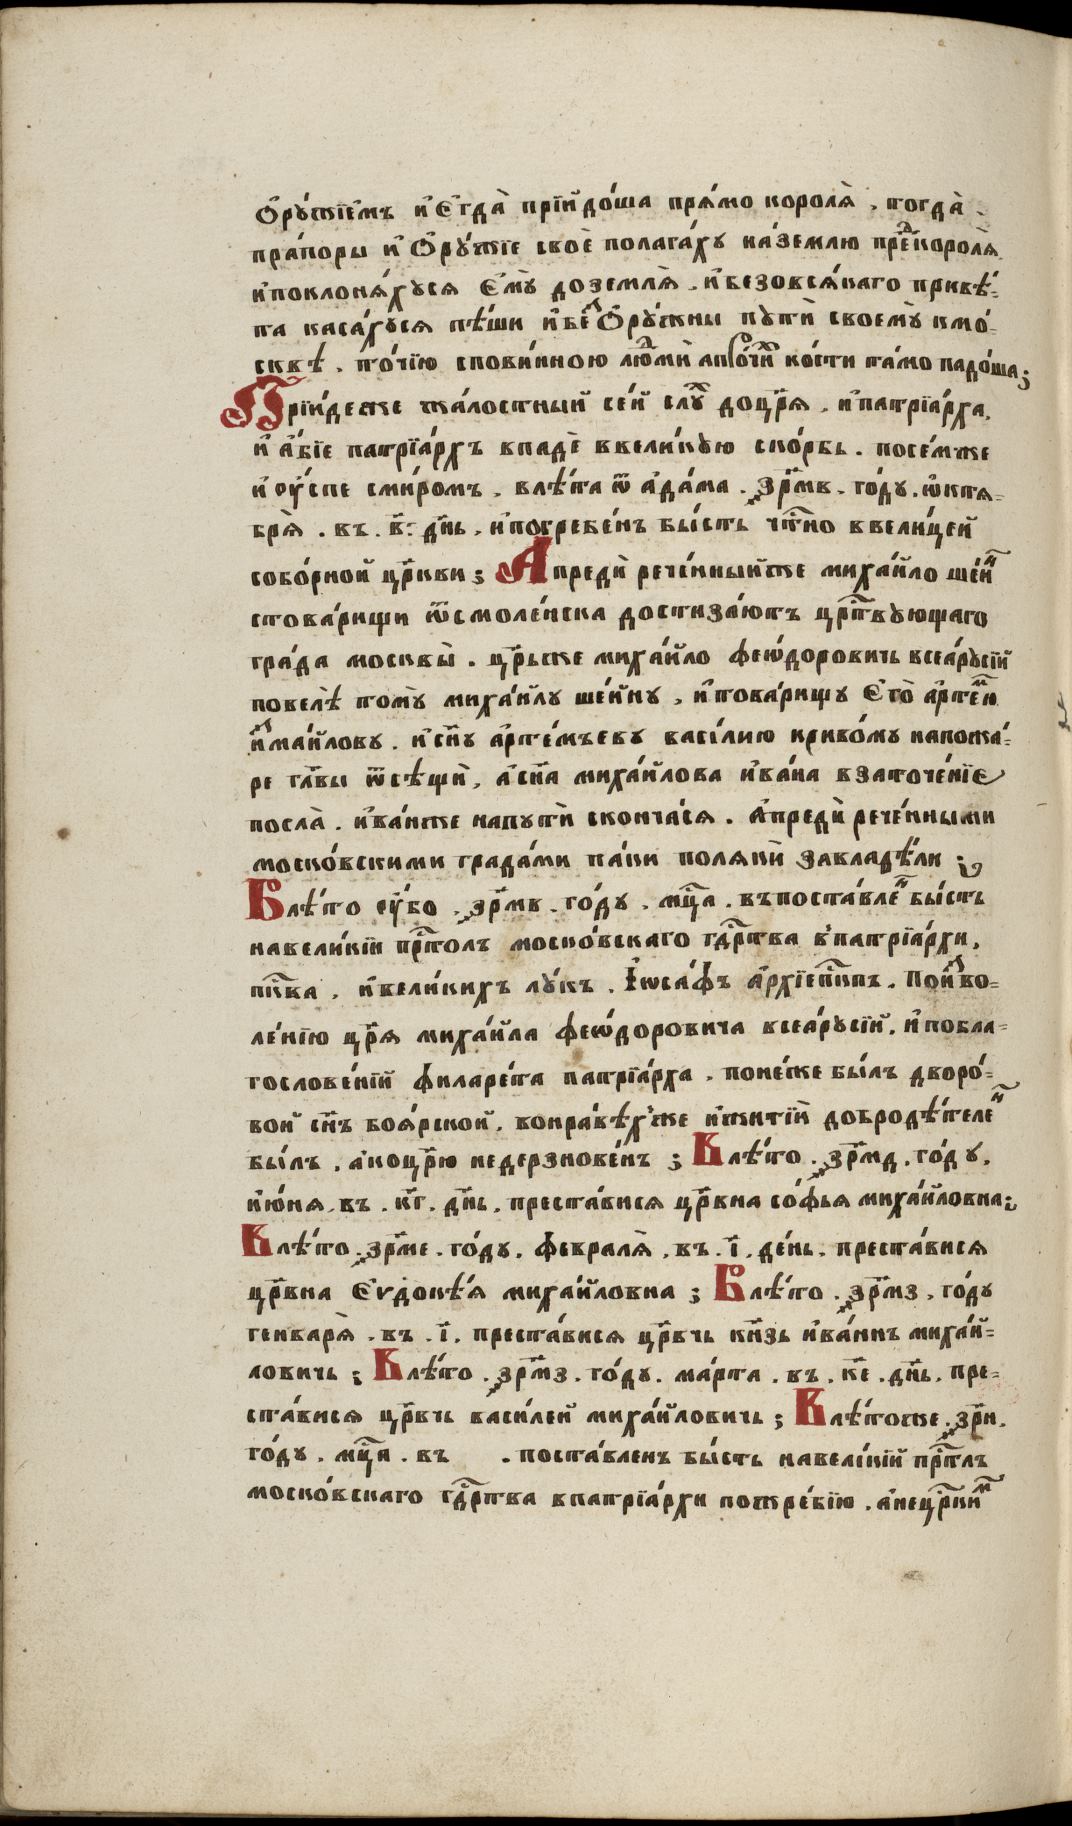 Ѻ҆рꙋ́жїемъ и҆ Є҆гда̀ прїидо́ша пря́мо короля̀ , тогда̀ .
пра́поры и҆ Ѻ҆рꙋ́жїе своѐ полага́хꙋ на́землю преⷣкороля̀
и҆поклоня́хꙋся Є҆мꙋ̀ доземля̀ . и҆безовся́каго привѣ́-
та каса́хꙋся пѣ́ши и҆беⷥѺ҆рꙋ́жны пꙋтѝ своемꙋ̀ кмо́-
сквѣ . то́чїю сповѝнною люⷣмѝ апро́чиⷯ ко́сти та́мо падо́ша ;
Прїи́деже жа́лостный се́й слꙋⷯ доцр҃я̀ . и҆патрїа́рха .
и҆ а҆́бїе патрїа́рхъ впадѐ ввели́кꙋю ско́рбь . посе́мже
и҆ оу҆́спе сми́ромъ . влѣ́та ѿ а҆да́ма . ҂зр҃мв . го́дꙋ . ѡ҆ктя-
бря̀ . въ . в҃ : дн҃ь . и҆погребе́нъ бы́сть чт҃но ввели́цей
собо́рной цр҃кви ; А предѝ рече́нныйже миха́йло ше́иⷩ
стова́рищи ѿсмоле́нска достиза́ютъ црⷭ҇твꙋющаго
гра́да москвы̀ . цр҃ьже миха́йло феѡ́доровичь всеа́рꙋсїй
повелѣ̀ томꙋ̀ миха́йлꙋ ше́инꙋ , и҆това́рищꙋ Є҆го̀ а҆рте́мⷨю
и҆ⷥма́йловꙋ . и҆сн҃ꙋ а҆рте́мъевꙋ васи́лию криво́мꙋ напожа́-
ре гл҃вы ѿсѣщѝ , а҆сн҃а миха́йлова и҆ва́на взаточе́нїе
посла̀ . и҆ва́нже напꙋтѝ сконча́ся . А҆предѝ рече́нными
моско́вскими града́ми па́ки поля́кѝ завладѣ́ли ;
Влѣ́то оу҆́бо . ҂зр҃мв . го́дꙋ . мцⷭ҇а . въпоста́влеⷩ бы́сть
навели́кїй прⷭ҇толъ моско́вскаго гдⷭ҇рства в̾патрїа́рхи ,
пскⷭ҇ва . и҆вели́кихъ лꙋ́къ . І҆ѡса́фъ а҆рхїепⷭ҇кпъ . Поиⷥво-
ле́нїю цр҃я̀ миха́йла феѡ́доровича всеа́рꙋсїй . и҆побла-
гослове́нїй филаре́та патрїа́рха . поне́же бы́лъ дворо́-
вой сн҃ъ боя́рской . вонравѣ́х̾же и҆житїй добродѣ́телеⷩ
бы́лъ . а҆коцр҃ю недерзнове́нъ ; Влѣ́то . ҂зр҃мд . го́дꙋ .
и҆ю́ня . въ . кг҃ . дн҃ь . преста́вися цр҃вна со́фья миха́йловна ;
Влѣ́то . ҂зр҃ме . го́дꙋ . февраля̀ . въ . і҃ . де́нь . преста́вися
цр҃вна Є҆ѵдокѣ́я миха́йловна ; Влѣ́то . ҂зр҃мз . го́дꙋ
генваря̀ . въ . і҃ . преста́вися цр҃вчь кн҃зь и҆ва́ннъ миха́й-
ловичь ; Влѣ́то . ҂зр҃мз . го́дꙋ . ма́рта . въ . ке҃ . дн҃ь . пре-
ста́вися цр҃вчь васи́лей миха́йловичь ; Влѣ́тоже . ҂зр҃н .
го́дꙋ . мцⷭ҇а . въ . поста́вленъ бы́сть навели́кїй прⷭ҇тлъ
моско́вскаго гдⷭ҇рства впатрїа́рхи пожре́бїю . а҆нецр҃киⷨ